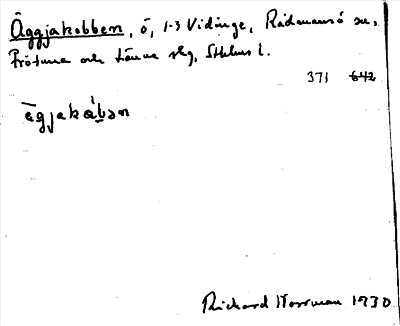 Äggjakobben, ö, 1-3 Vidinge, Rådmansö sn,
Frötuna och Länna slg, Sthlms l.
371 642
ägjakåbən
Rickard Norrman 1930